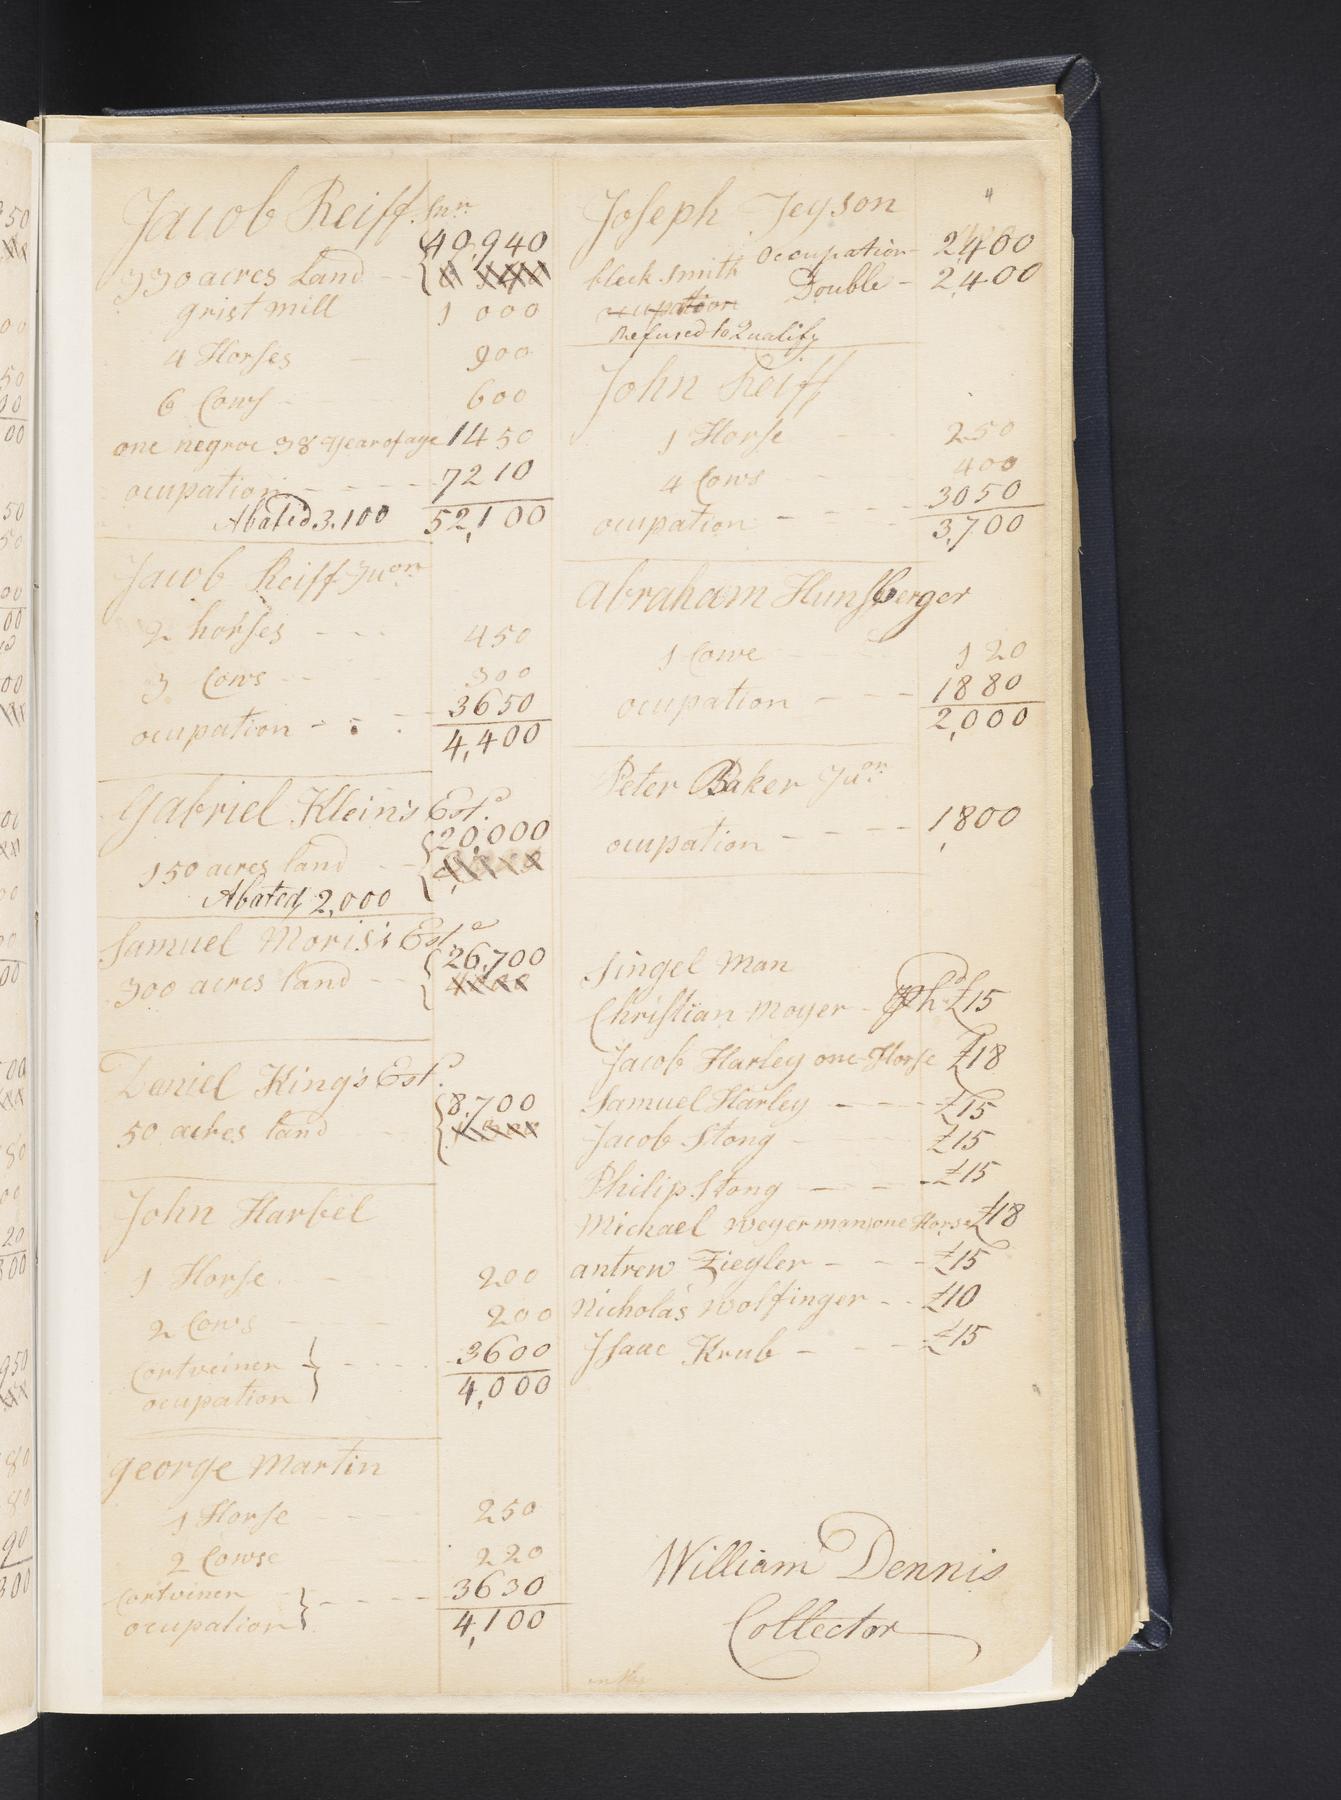 Jacob Reiff Snr
40,940
330 acres Land
grist mill 1000
4 Horses 900
6 Cows 600
one negroe 38 year of age 1450
ocupation 7210
Abated 3,100 52,100
Jacob Reiff Juon
2 horses 450
3 Cows 300
ocupation 3650
4,400
Gabriel Klein's Este
20,000
150 acres land
Abated, 2,000
Samuel Moris's Este
26,700
300 acres land
Daniel King's Este
8,700
50 acres land
John Harbel
1 Horse 200
2 Cows 200
Cortveiner 3600
ocupation 4,000
george Martin
1 Horse 250
2 Cowse 220
Cortveiner 3630
ocupation 4,100
Joseph Jeyson
Occupation 2,400
black smith Double 2,400
ocupation
Refused to Qualify
John Reiff
1 Horse 250
4 Cows 400
3050
ocupation 3,700
Abraham Hunsberger
1 Cowe 120
ocupation 1880
2,000
Peter Baker Juon
ocupation 1800
Singel Man
Christian Moyer £15
Jacob Harley one Horse £18
Samuel Harley £15
Jacob Stong £15
Philip Stong £15
Michael Weyerman one Horse £18
antrew Ziegler £15
Nicholas Wolfinger £10
Isaac Krub £15
William Dennis
Collector